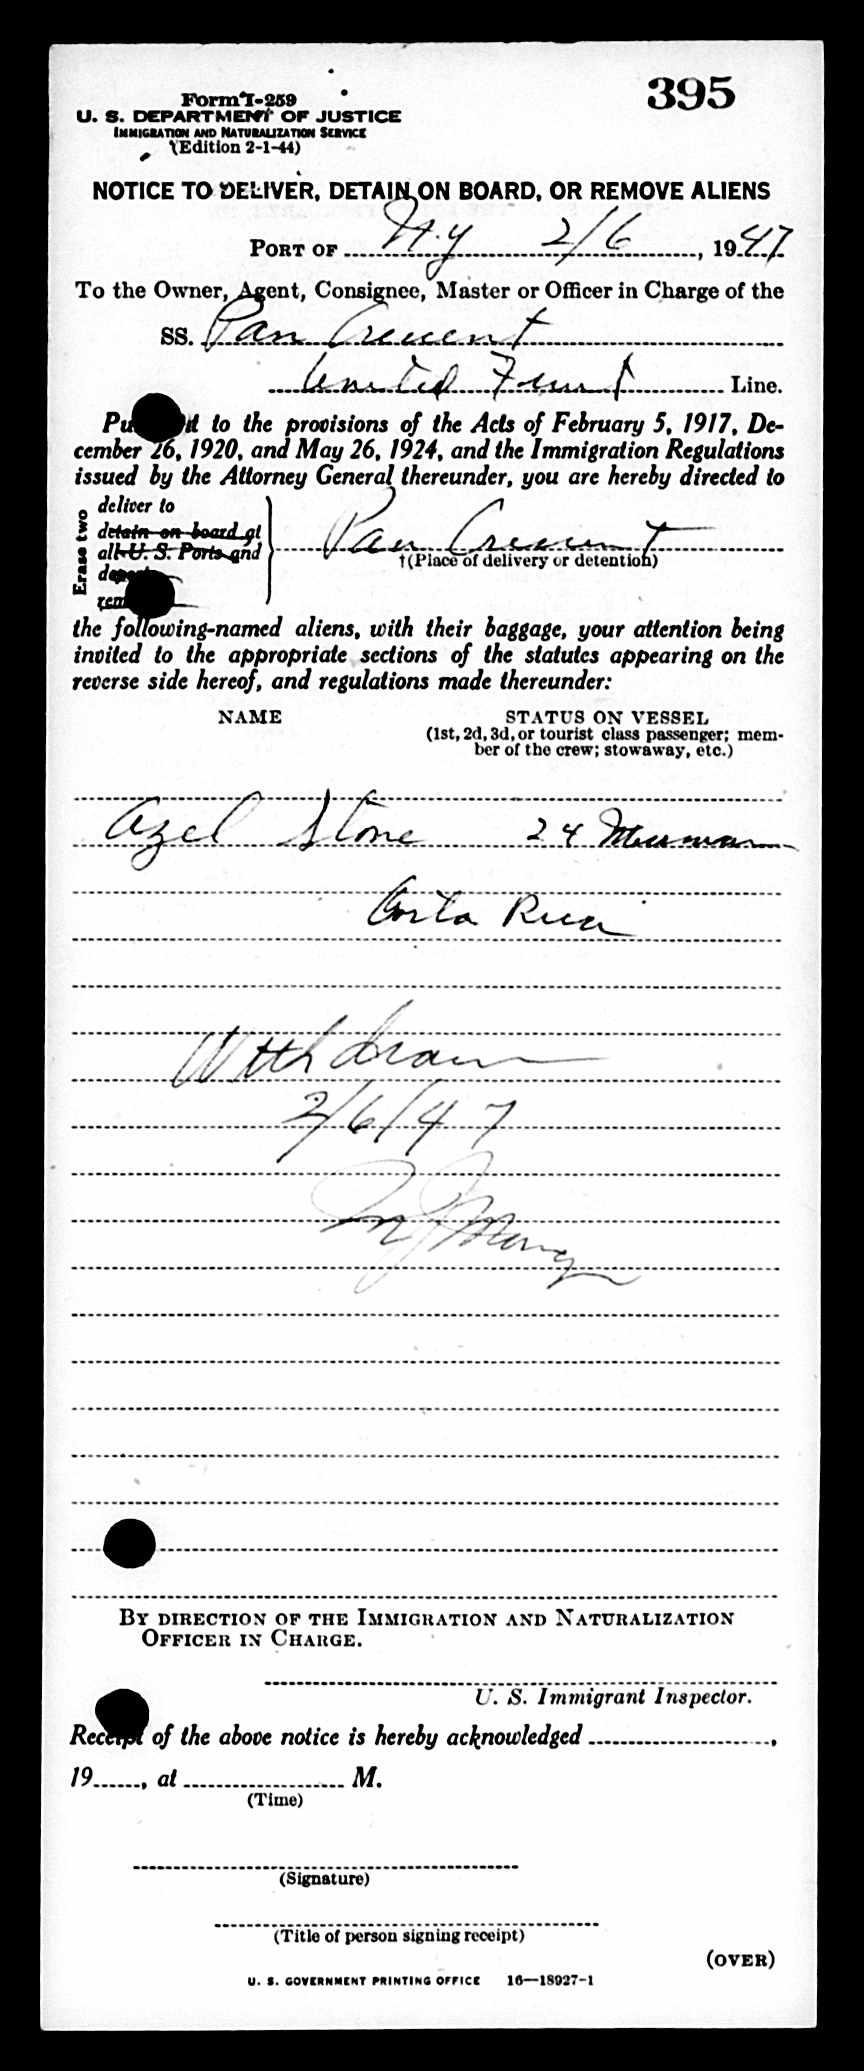 395
Form I-259
U. S. DEPARTMENT OF JUSTICE
IMMIGRATION AND NATURALIZATION SERVICE
(Edition 2-1-44)
NOTICE TO DELIVER, DETAIN ON BOARD, OR REMOVE ALIENS
PORT OF N.Y 2/6, 1947
To the Owner, Agent, Consignee, Master or Officer in Charge of the
SS. Pan Crescent
United Fruit Line.
Pu t to the provisions of the Acts of February 5, 1917, De-
cember 26, 1920, and May 26, 1924, and the Immigration Regulations
issued by the Attorney General thereunder, you are hereby directed to
Erase two
deliver to
detain on board at
all U. S. Ports and
depo
rem
Pan Crescent
†(Place of delivery or detention)
the following-named aliens, with their baggage, your attention being
invited to the appropriate sections of the statutes appearing on the
reverse side hereof, and regulations made thereunder:
NAME STATUS ON VESSEL
(1st, 2d, 3d, or tourist class passenger; mem-
ber of the crew; stowaway, etc.)
Azel Stone 24 Messman
Costa Rica
Withdrawn
2/6/47
BY DIRECTION OF THE IMMIGRATION AND NATURALIZATION
OFFICER IN CHARGE.
U. S. Immigrant Inspector.
Receipt of the above notice is hereby acknowledged ,
19 , at M.
(Time)
(Signature)
(Title of person signing receipt)
(OVER)
U. S. GOVERNMENT PRINTING OFFICE 16—18927-1